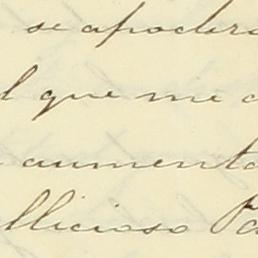 se apoder
l que me
aumenta
llicioso Pa